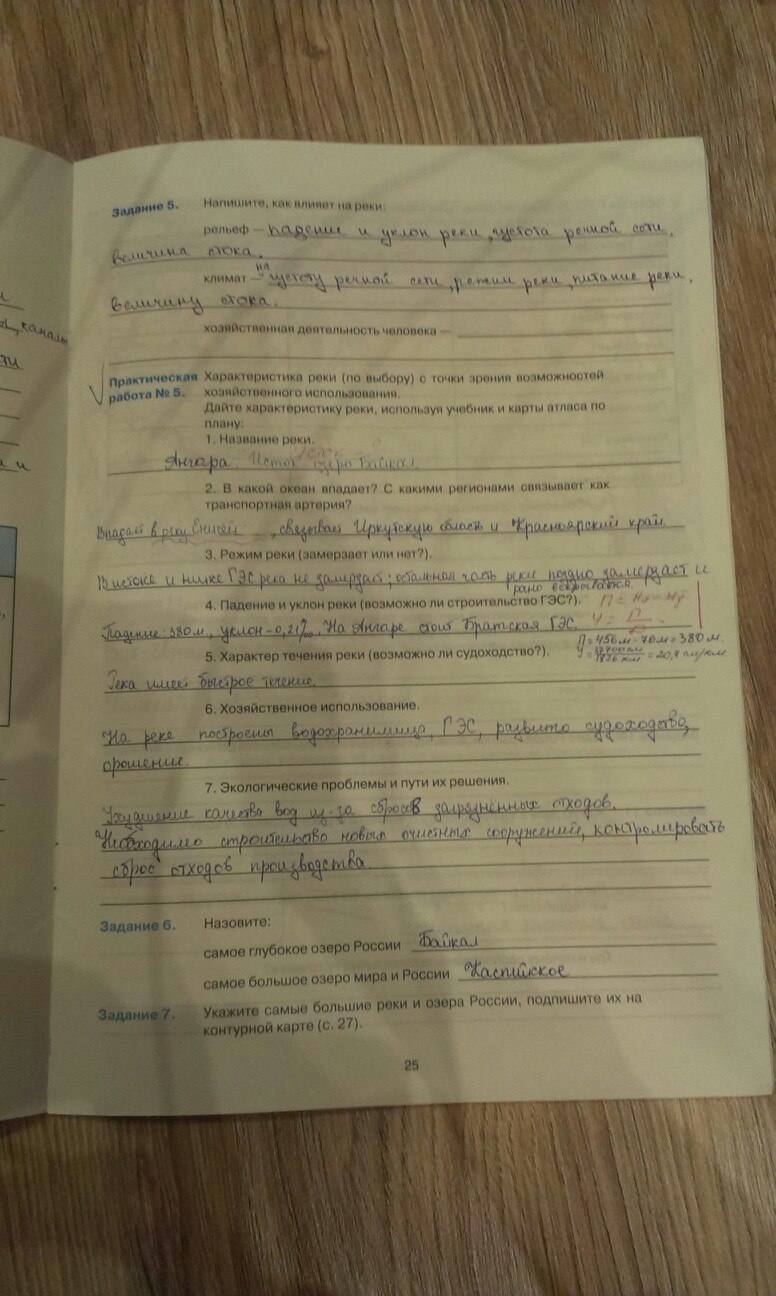 Задание 5. Напишите, как влияет на реки:
рельеф — падение и уклон реки, густота речной сети,
величина стока.
на
климат — густоту речной сети, режим реки, питание реки,
величину стока.
каналы
хозяйственная деятельность человека —
Практическая работа № 5. Характеристика реки (по выбору) с точки зрения возможностей
хозяйственного использования.
Дайте характеристику реки, используя учебник и карты атласа по
плану:
1. Название реки.
Ангара. Исток озеро Байкал
2. В какой океан впадает? С какими регионами связывает как
транспортная артерия?
Впадает в реку Енисей, связывает Иркутскую область и Красноярский край.
3. Режим реки (замерзает или нет?).
В истоке и ниже ГЭС река не замерзает; остальная часть реки поздно замерзает и
рано вскрывается.
4. Падение и уклон реки (возможно ли строительство ГЭС?).
Падение: 380 м, уклон - 0,21‰. На Ангаре стоит Братская ГЭС.
П = 456м - 76м = 380 м.
= 20,7 см/км
5. Характер течения реки (возможно ли судоходство?).
Река имеет быстрое течение.
6. Хозяйственное использование.
На реке построены водохранилища, ГЭС, развито судоходство,
орошение.
7. Экологические проблемы и пути их решения.
Ухудшение качества вод из-за сбросов загрязненных отходов.
Необходимо строительство новых очистных сооружений, контролировать
сброс отходов производства
Задание 6. Назовите:
самое глубокое озеро России Байкал
самое большое озеро мира и России Каспийское
Задание 7. Укажите самые большие реки и озера России, подпишите их на
контурной карте (с. 27).
25